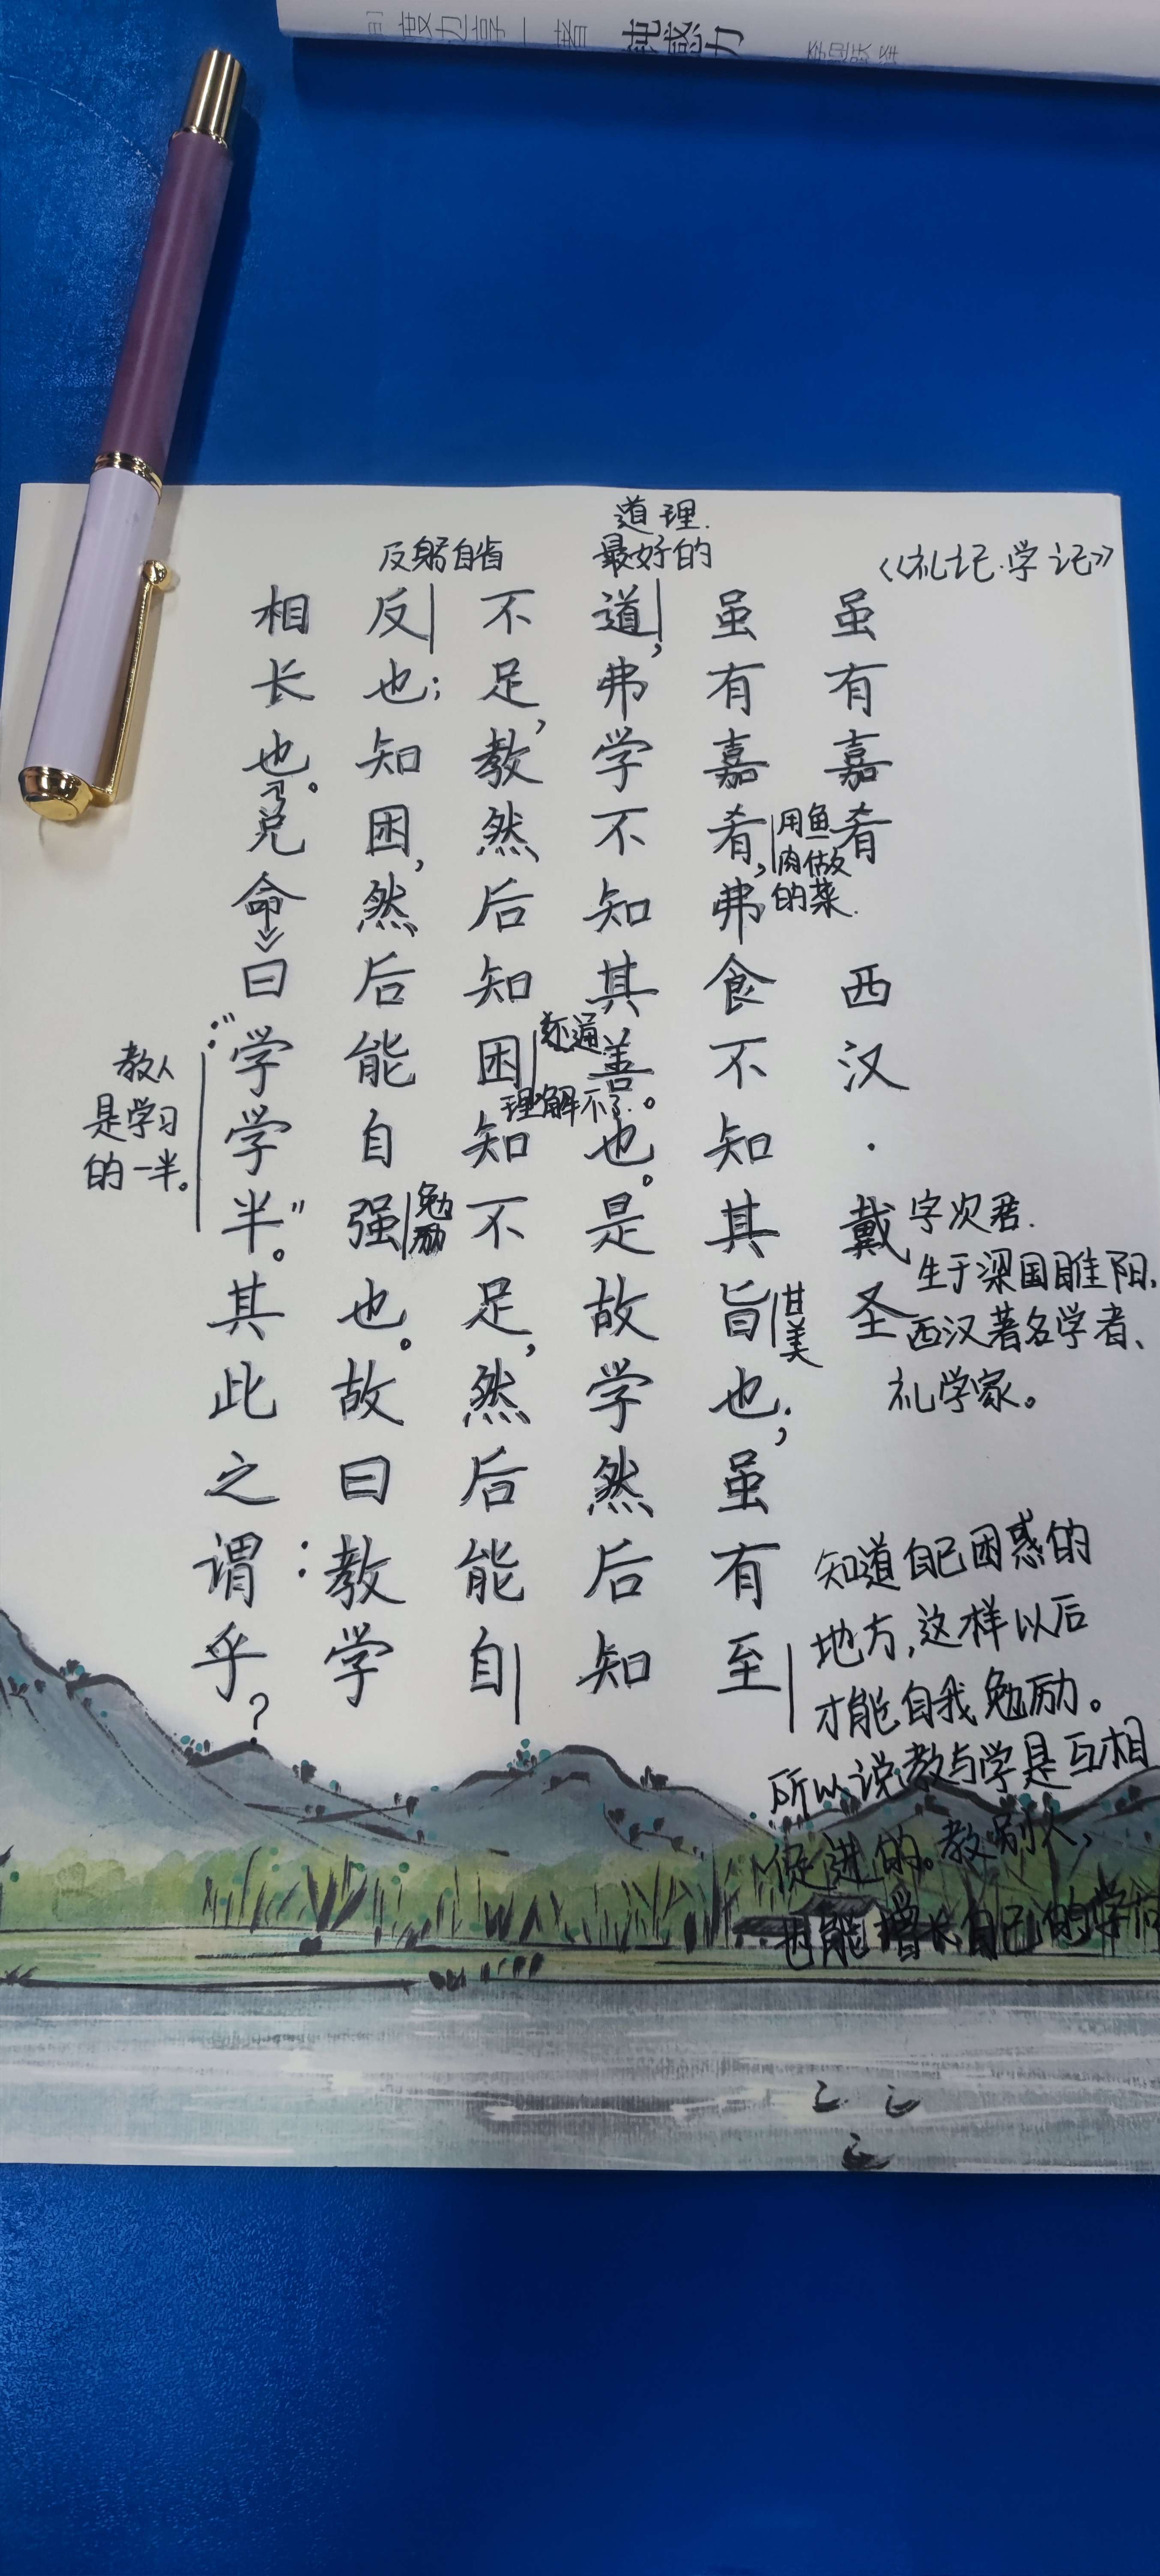 著 钝感力
《礼记·学记》
虽有嘉肴 西汉·戴圣
字次君.
生于梁国睢阳,
西汉著名学者、
礼学家。
虽有嘉肴,弗食不知其旨也;虽有至
用鱼
肉做
的菜.
甘美
道理.
最好的
道,弗学不知其善也。是故学然后知
不足,教然后知困知不足,然后能自
不通
理解不了.。
反躬自省
反也;知困,然后能自强也。故曰:教学
勉励
相长也。兑命曰:“学学半。”其此之谓乎?
教人
是学习
的一半。
知道自己困惑的
地方,这样以后
才能自我勉励。
所以说教与学是互相
促进的。教别人,
也能增长自己的学